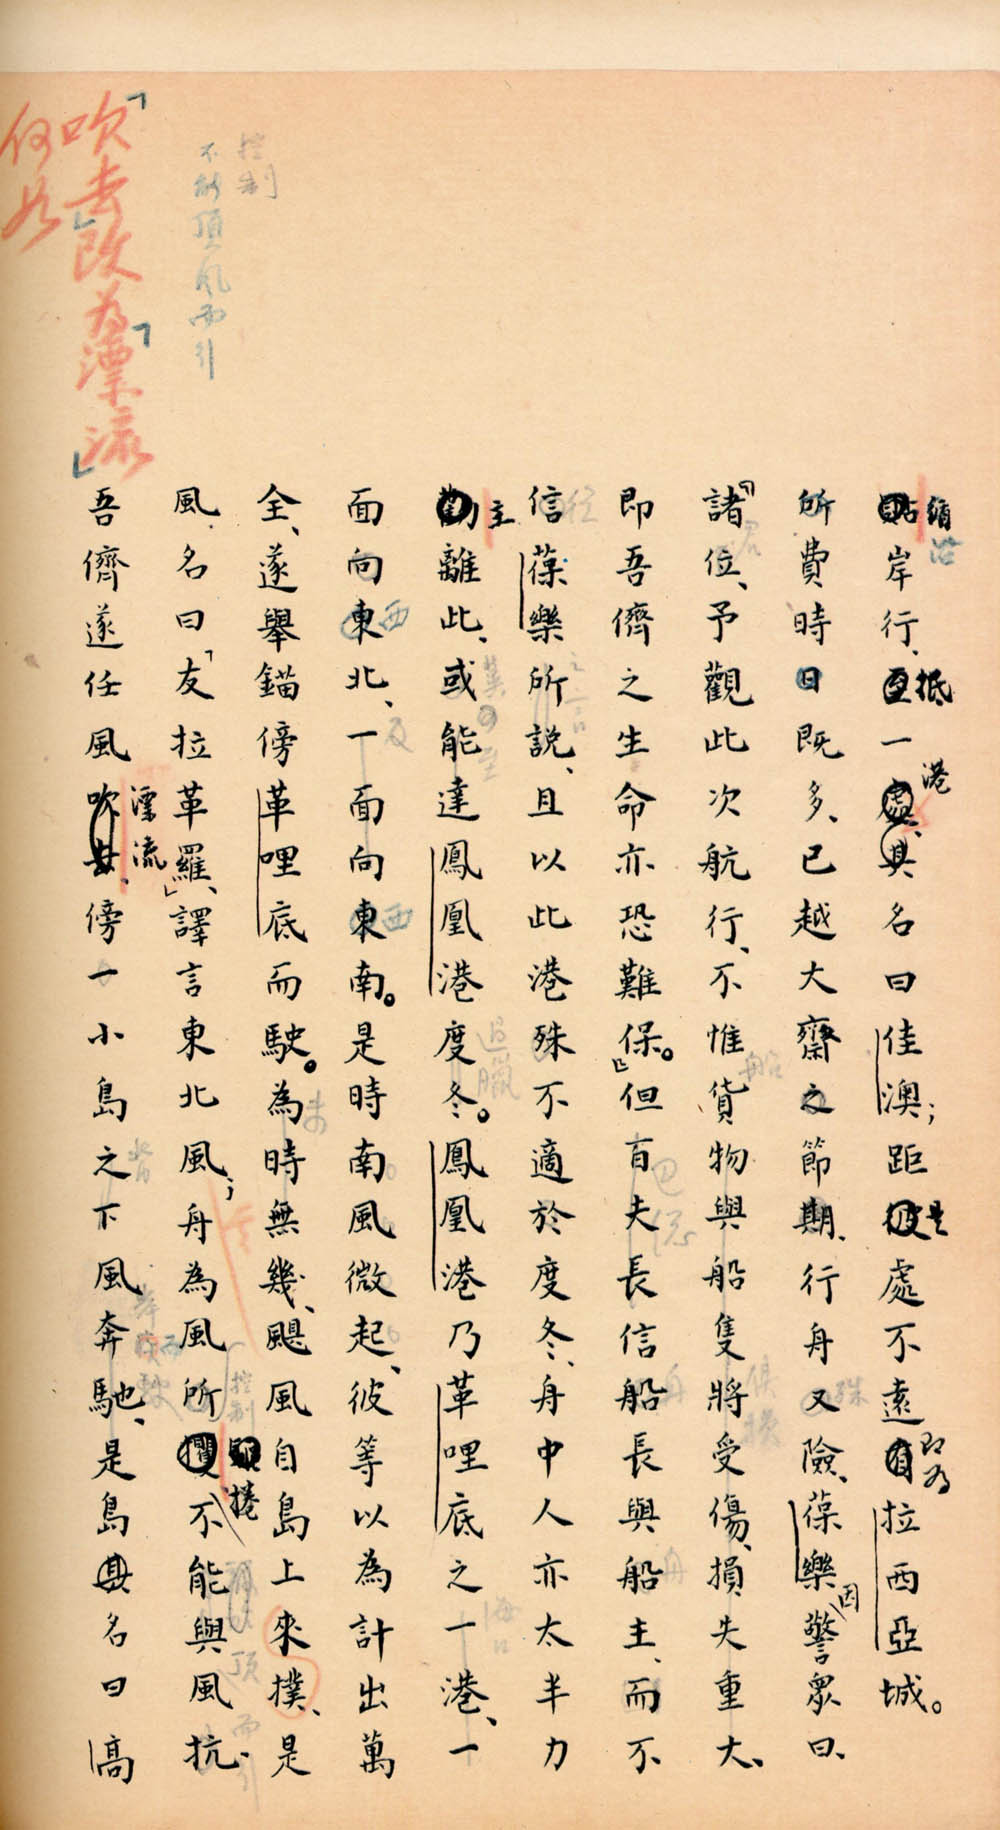 岸行、一、其名曰佳澳；距處不遠拉西亞城。
循
沿
抵
港
是
即為
所費時日既多、已越大齋之節期、行舟又險、葆樂因警眾曰、
殊
諸位、予觀此次航行、不惟貨物與船隻將受傷、損失重大、
君
船
俱損
即吾儕之生命亦恐難保。」但百夫長信船長與船主、而不
舟
舟
信葆樂所說、且以此港殊不適於度冬、舟中人亦太半力
從
之言
主勸離此、或能達鳳凰港度冬。鳳凰港乃革哩底之一港、一
冀
過臘
海口
面向東北、一面向東南。是時南風微起、彼等以為計出萬
西
西
全、遂舉錨傍革哩底而駛。為時無幾、颶風自島上來撲、是
未
風、名曰「友拉革羅」、譯言東北風；舟為風所不能與風抗、
捲
控制
頂
而
吾儕遂任風吹去、傍一小島之下風奔馳、是島其名曰高
漂流
控制
不能頂風而引
「吹去」改為「漂流」
何如